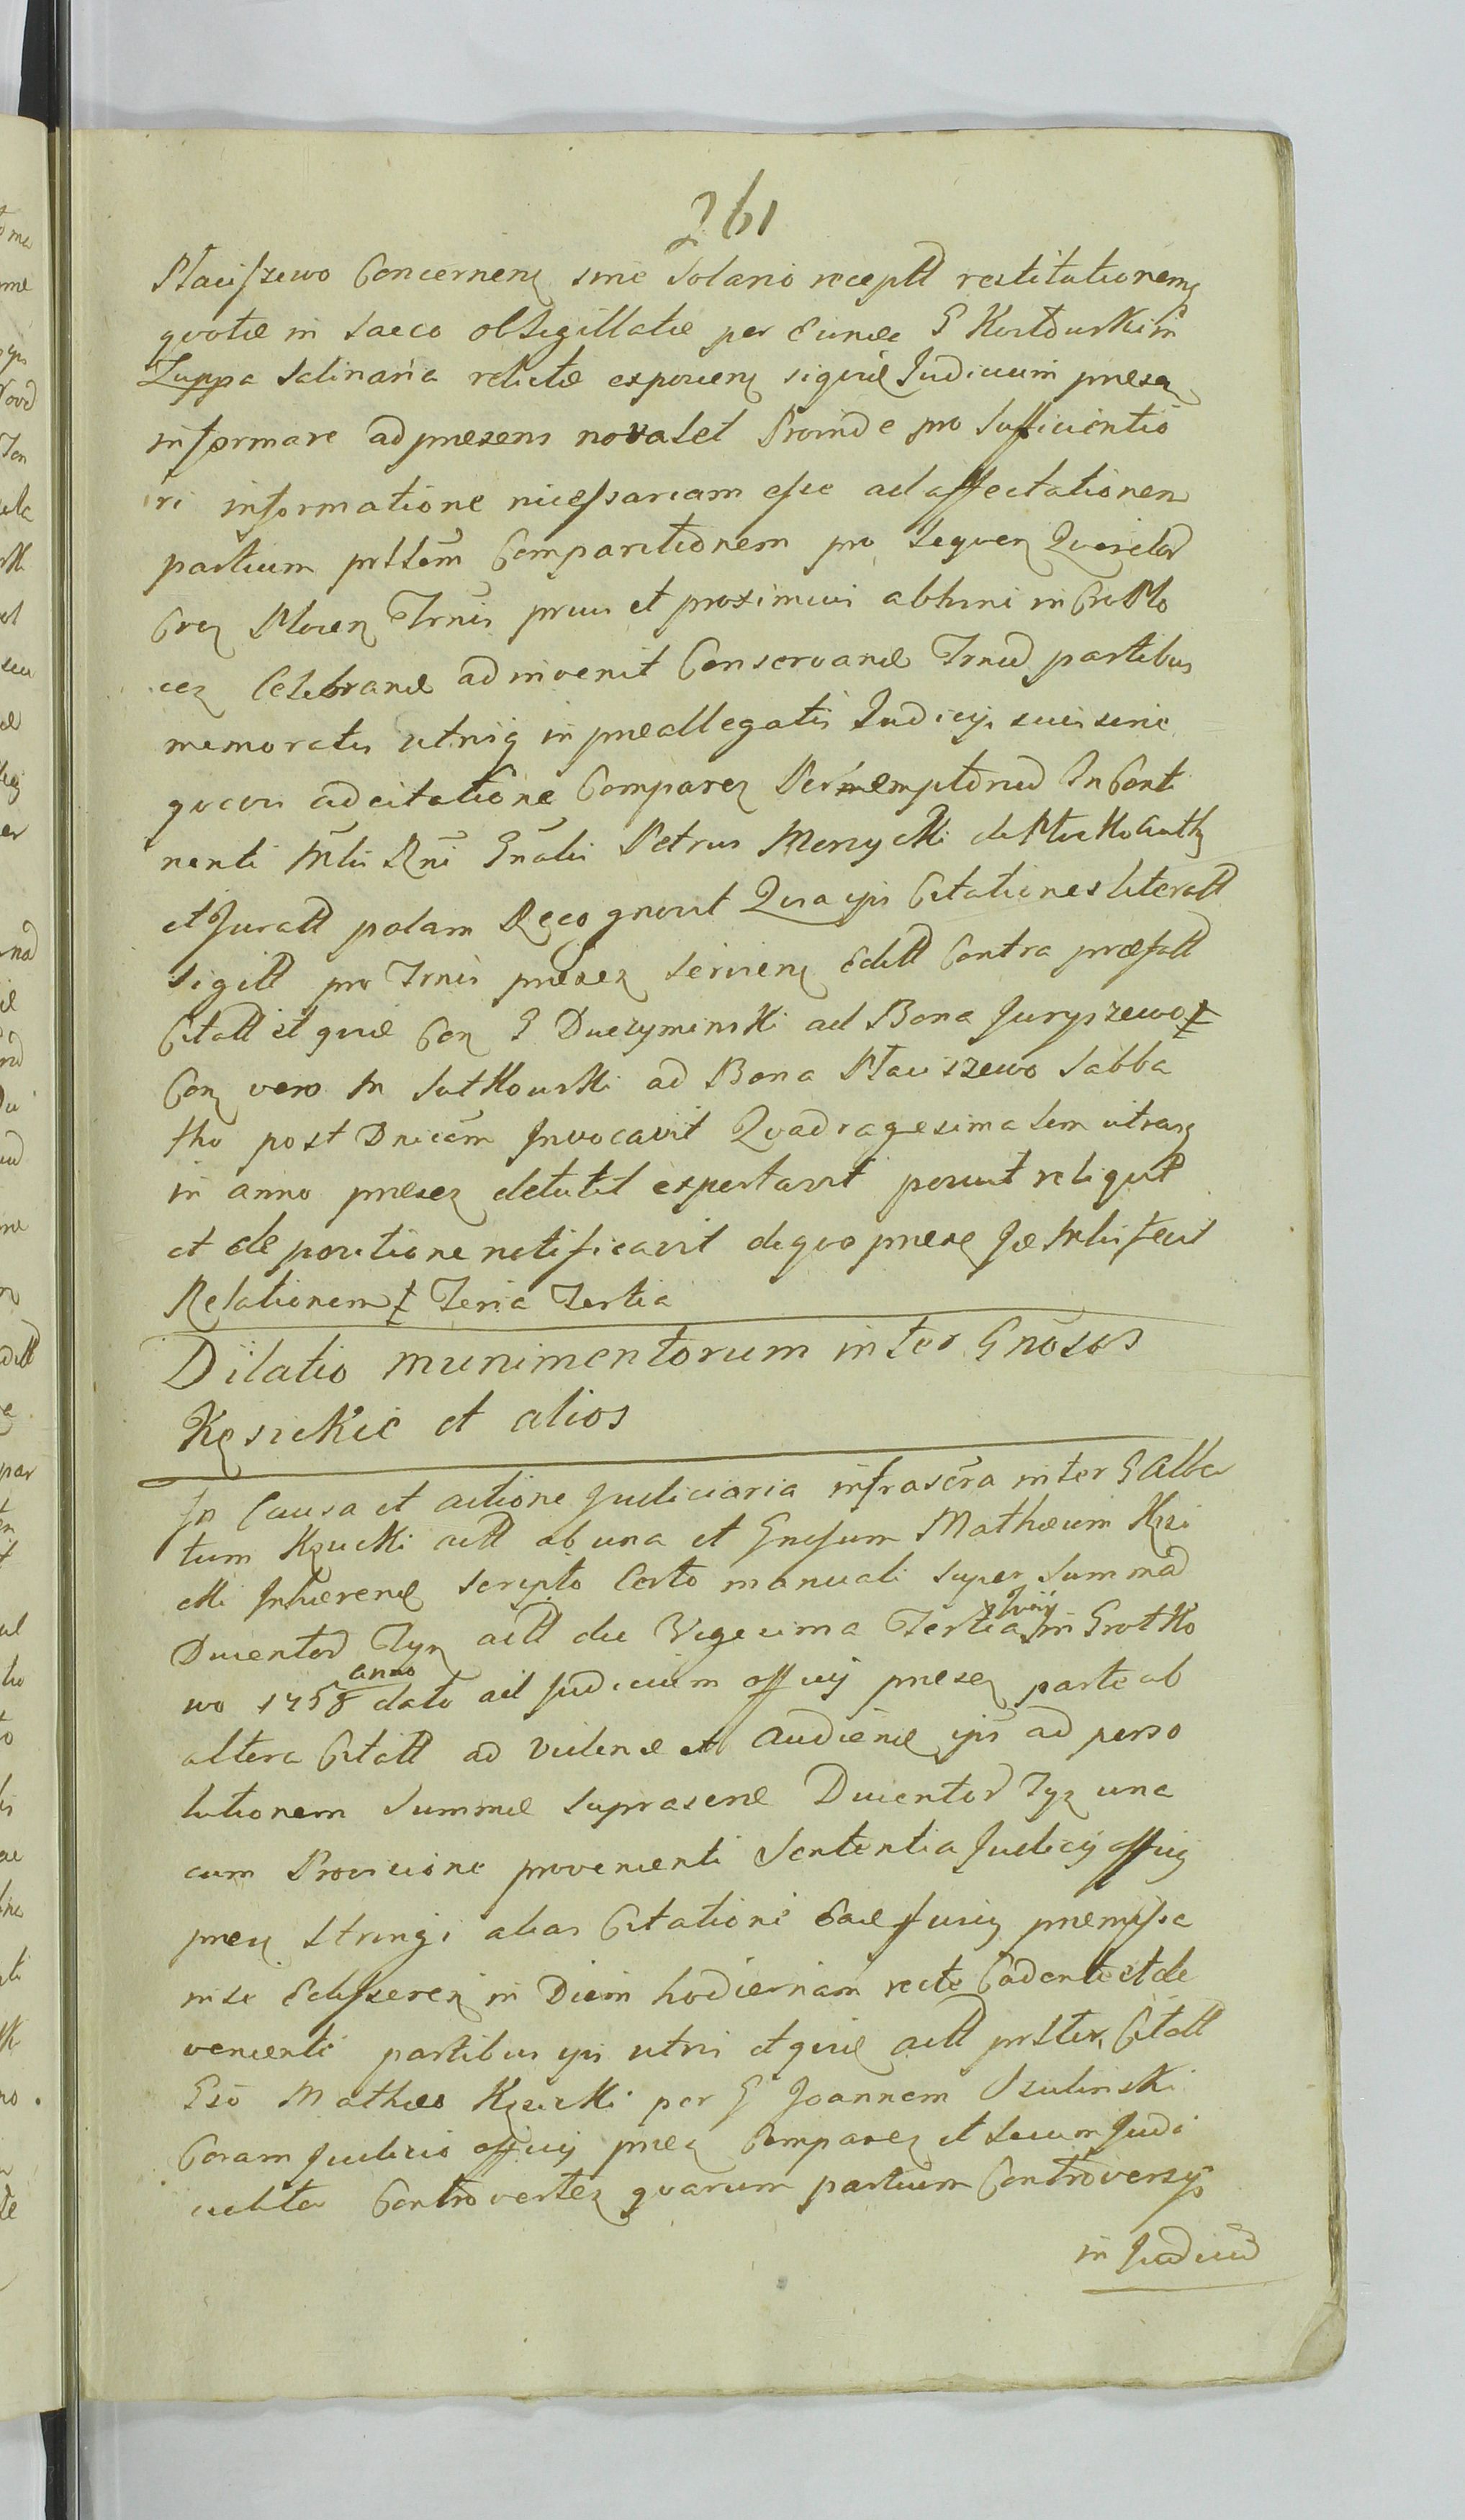 261
Staniszewo Concernen sine Solario receptt restitutionemq
quotæ in Sacco obsigillatæ per eunde G Kostdurski in
Zuppa Salinaria relictæ exponen siquid Judicium presen
informare ad presens no valet Proinde pro sufficientio
ri informatione necessariam esse ad affectationem
partium prttem Comparitionem pro sequen Querelar
Cren Plocen Trnis prius et proximius abhinc in Cro Plo
cen Celebrand adinvenit Conservand Trnu partibus
memoratis utriq in præallegatis Judicys suis sine
quavis adcitatione Comparen Peremptoriu In Conti
nenti Mtis Rni Gnalis Petrus Merzycki de Plocko auth
et Juratt palam Recognovit Quia ips Citationes literatt
sigill pro Trnis presen servien Editt Contra præfatt
Citatt et quid Con G Duczyminski ad Bona Juryszewo
Con vero M Sutkowski ad Bona Staniszewo Sabba
tho post Dnicam Invocavit Quadragesimalem utrasq
in anno presen detulit expertavit posuit reliquit
et de positione notificavit de quo presen Jæ Mtis fecit
Relationem Feria Tertia
Dilatio munimentorum inter Gnosos
Kęsickie et alios
In Causa et actione Judiciaria infrascra inter G Alber
tum Kęsicki actt ab una et Gnosum Mathæum Kęsi
cki Inhærend scripto Certo manuali super Summa
Ducentor Tyn actt die Vigesima Tertia Junij in Grotko
wo anno 1758 dato ad Judicium officij presen parte ab
altera Citatt ad Vidend et audiend ips ad perso
lutionem Summæ suprascræ Ducentor Tyn una
cum Provisione provenienti Sententia Judicij officij
presen stringi alias Citationi Eadq Jusiq præmissa
in se Eclisseren in Diem hodiernam recte Cadente et de
venienti partibus ips utris et quid actt prtter Citatt
Gso Mathæo Kęsicki per G Joannem Szulinski
Coram Judicio officij presen Comparen et secum Judi
cialiter Controverten quarum partium Controversijs
in Judiciu